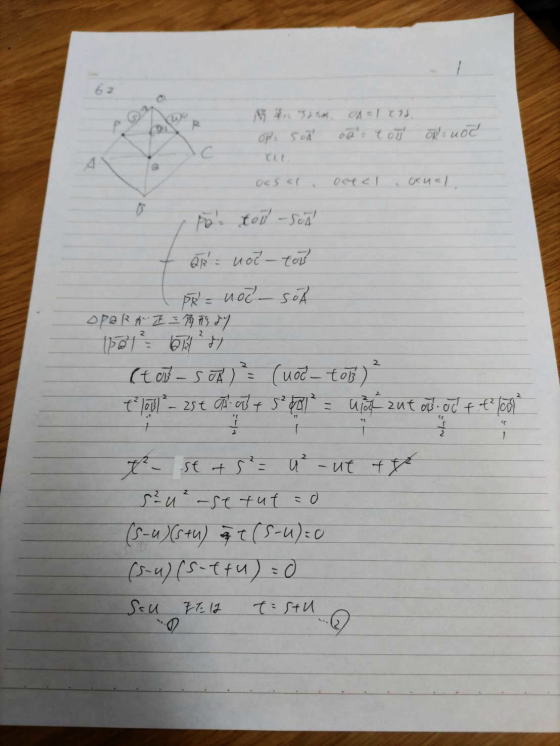 1
62
O
P R
A C
Q
B
簡単にするため、OA=1とする
OP→ = sOA→ OQ→ = tOB→ OR→ = uOC→
とし
0<s<1, 0<t<1, 0<u<1
PQ→ = tOB→ - sOA→
QR→ = uOC→ - tOB→
PR→ = uOC→ - sOA→
△PQRが正三角形より
|PQ→|² = |QR→|² より
(tOB→ - sOA→)² = (uOC→ - tOB→)²
t²|OB→|² - 2st OA→・OB→ + s²|OA→|² = u²|OC→|² - 2ut OB→・OC→ + t²|OB→|²
1 1/2 1 1 1/2 1
t² - st + s² = u² - ut + t²
s² - u² - st + ut = 0
(s-u)(s+u) - t(s-u) = 0
(s-u)(s-t+u) = 0
s=u または t=s+u
…① …②